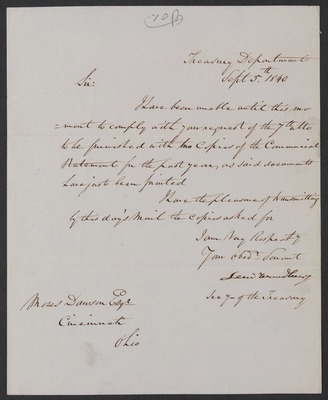 70
Treasury Department
Sept 5th 1840
Sir:
I have been unable until this mo
=ment to comply with your request of the 7th ulto
to be furnished with two Copies of the Commercial
Statement for the past year, as said documents
have just been printed
I have the pleasure of transmitting
by this day's Mail the Copies asked for
I am Very Respecty
Your obedt Servant
Levi Woodbury
Secy of the Treasury
Moses Dawson Esqr
Cincinnati
Ohio